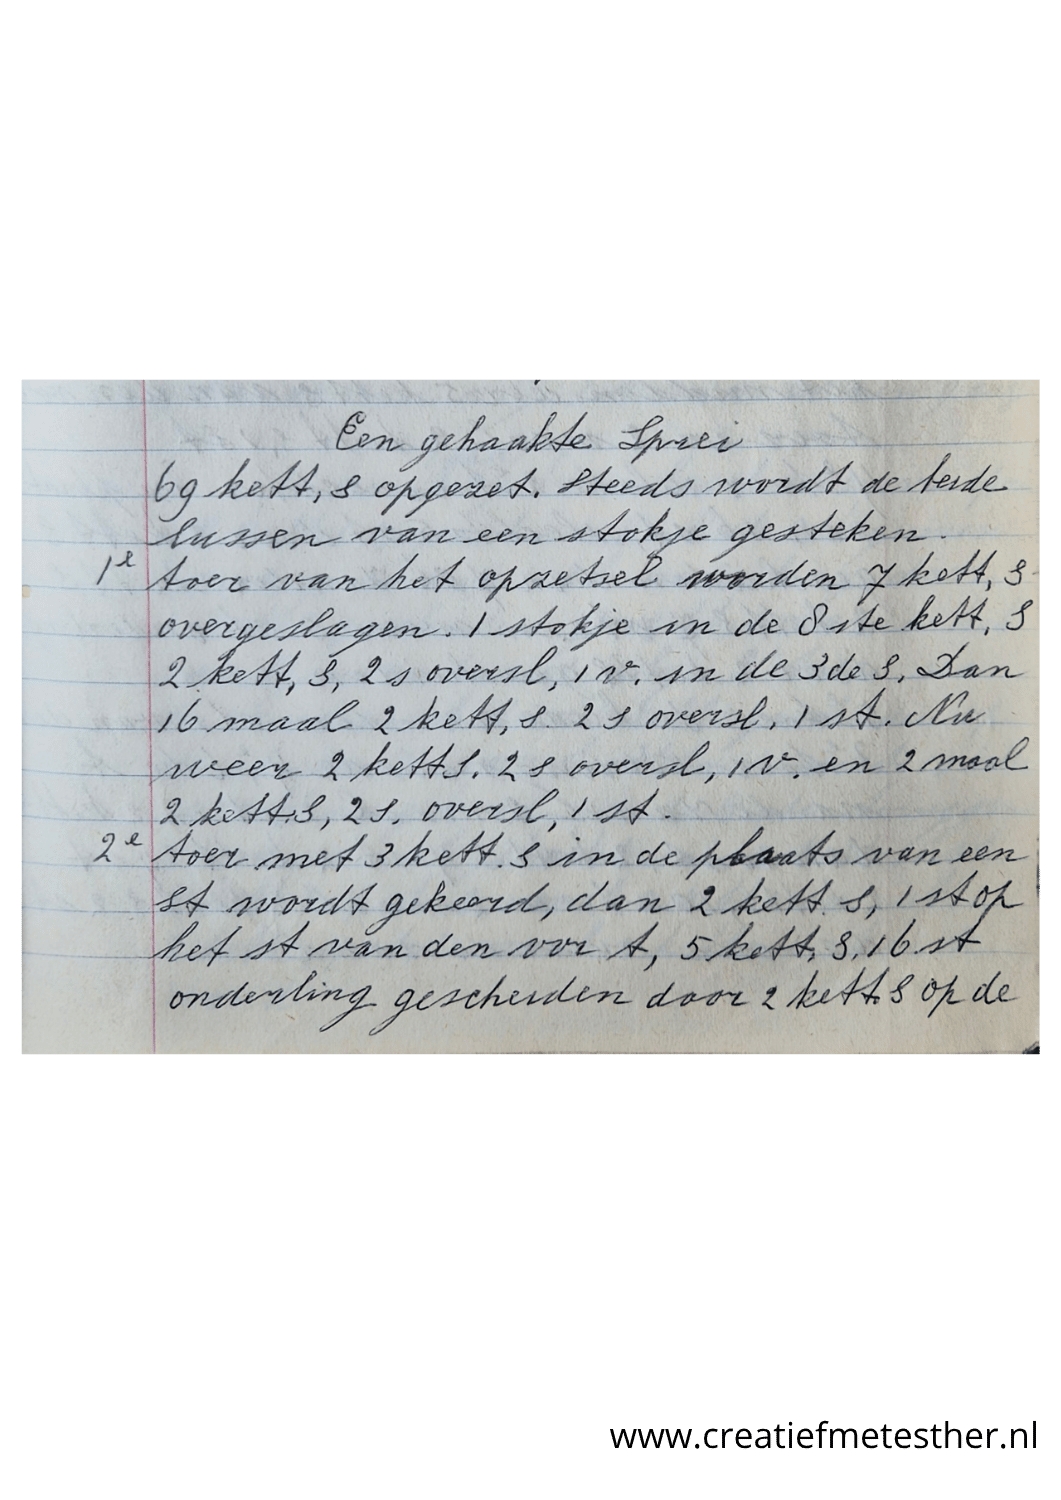 Een gehaakte Sprei
69 kett, s opgezet. Steeds wordt de beide
lussen van een stokje gesteken.
1e toer van het opzetsel worden 7 kett, s
overgeslagen. 1 stokje in de 8 ste kett, s
2 kett, s, 2 s oversl, 1 v. in de 3de s. Dan
16 maal 2 kett, s. 2 s oversl. 1 st. Nu
weer 2 kett s. 2 s oversl, 1 v. en 2 maal
2 kett. s, 2 s. oversl, 1 st.
2e toer met 3 kett. s in de plaats van een
st wordt gekeerd, dan 2 kett s, 1 st op
het st van den vor t, 5 kett, s, 16 st
onderling gescheiden door 2 kett. s op de
www.creatiefmetesther.nl